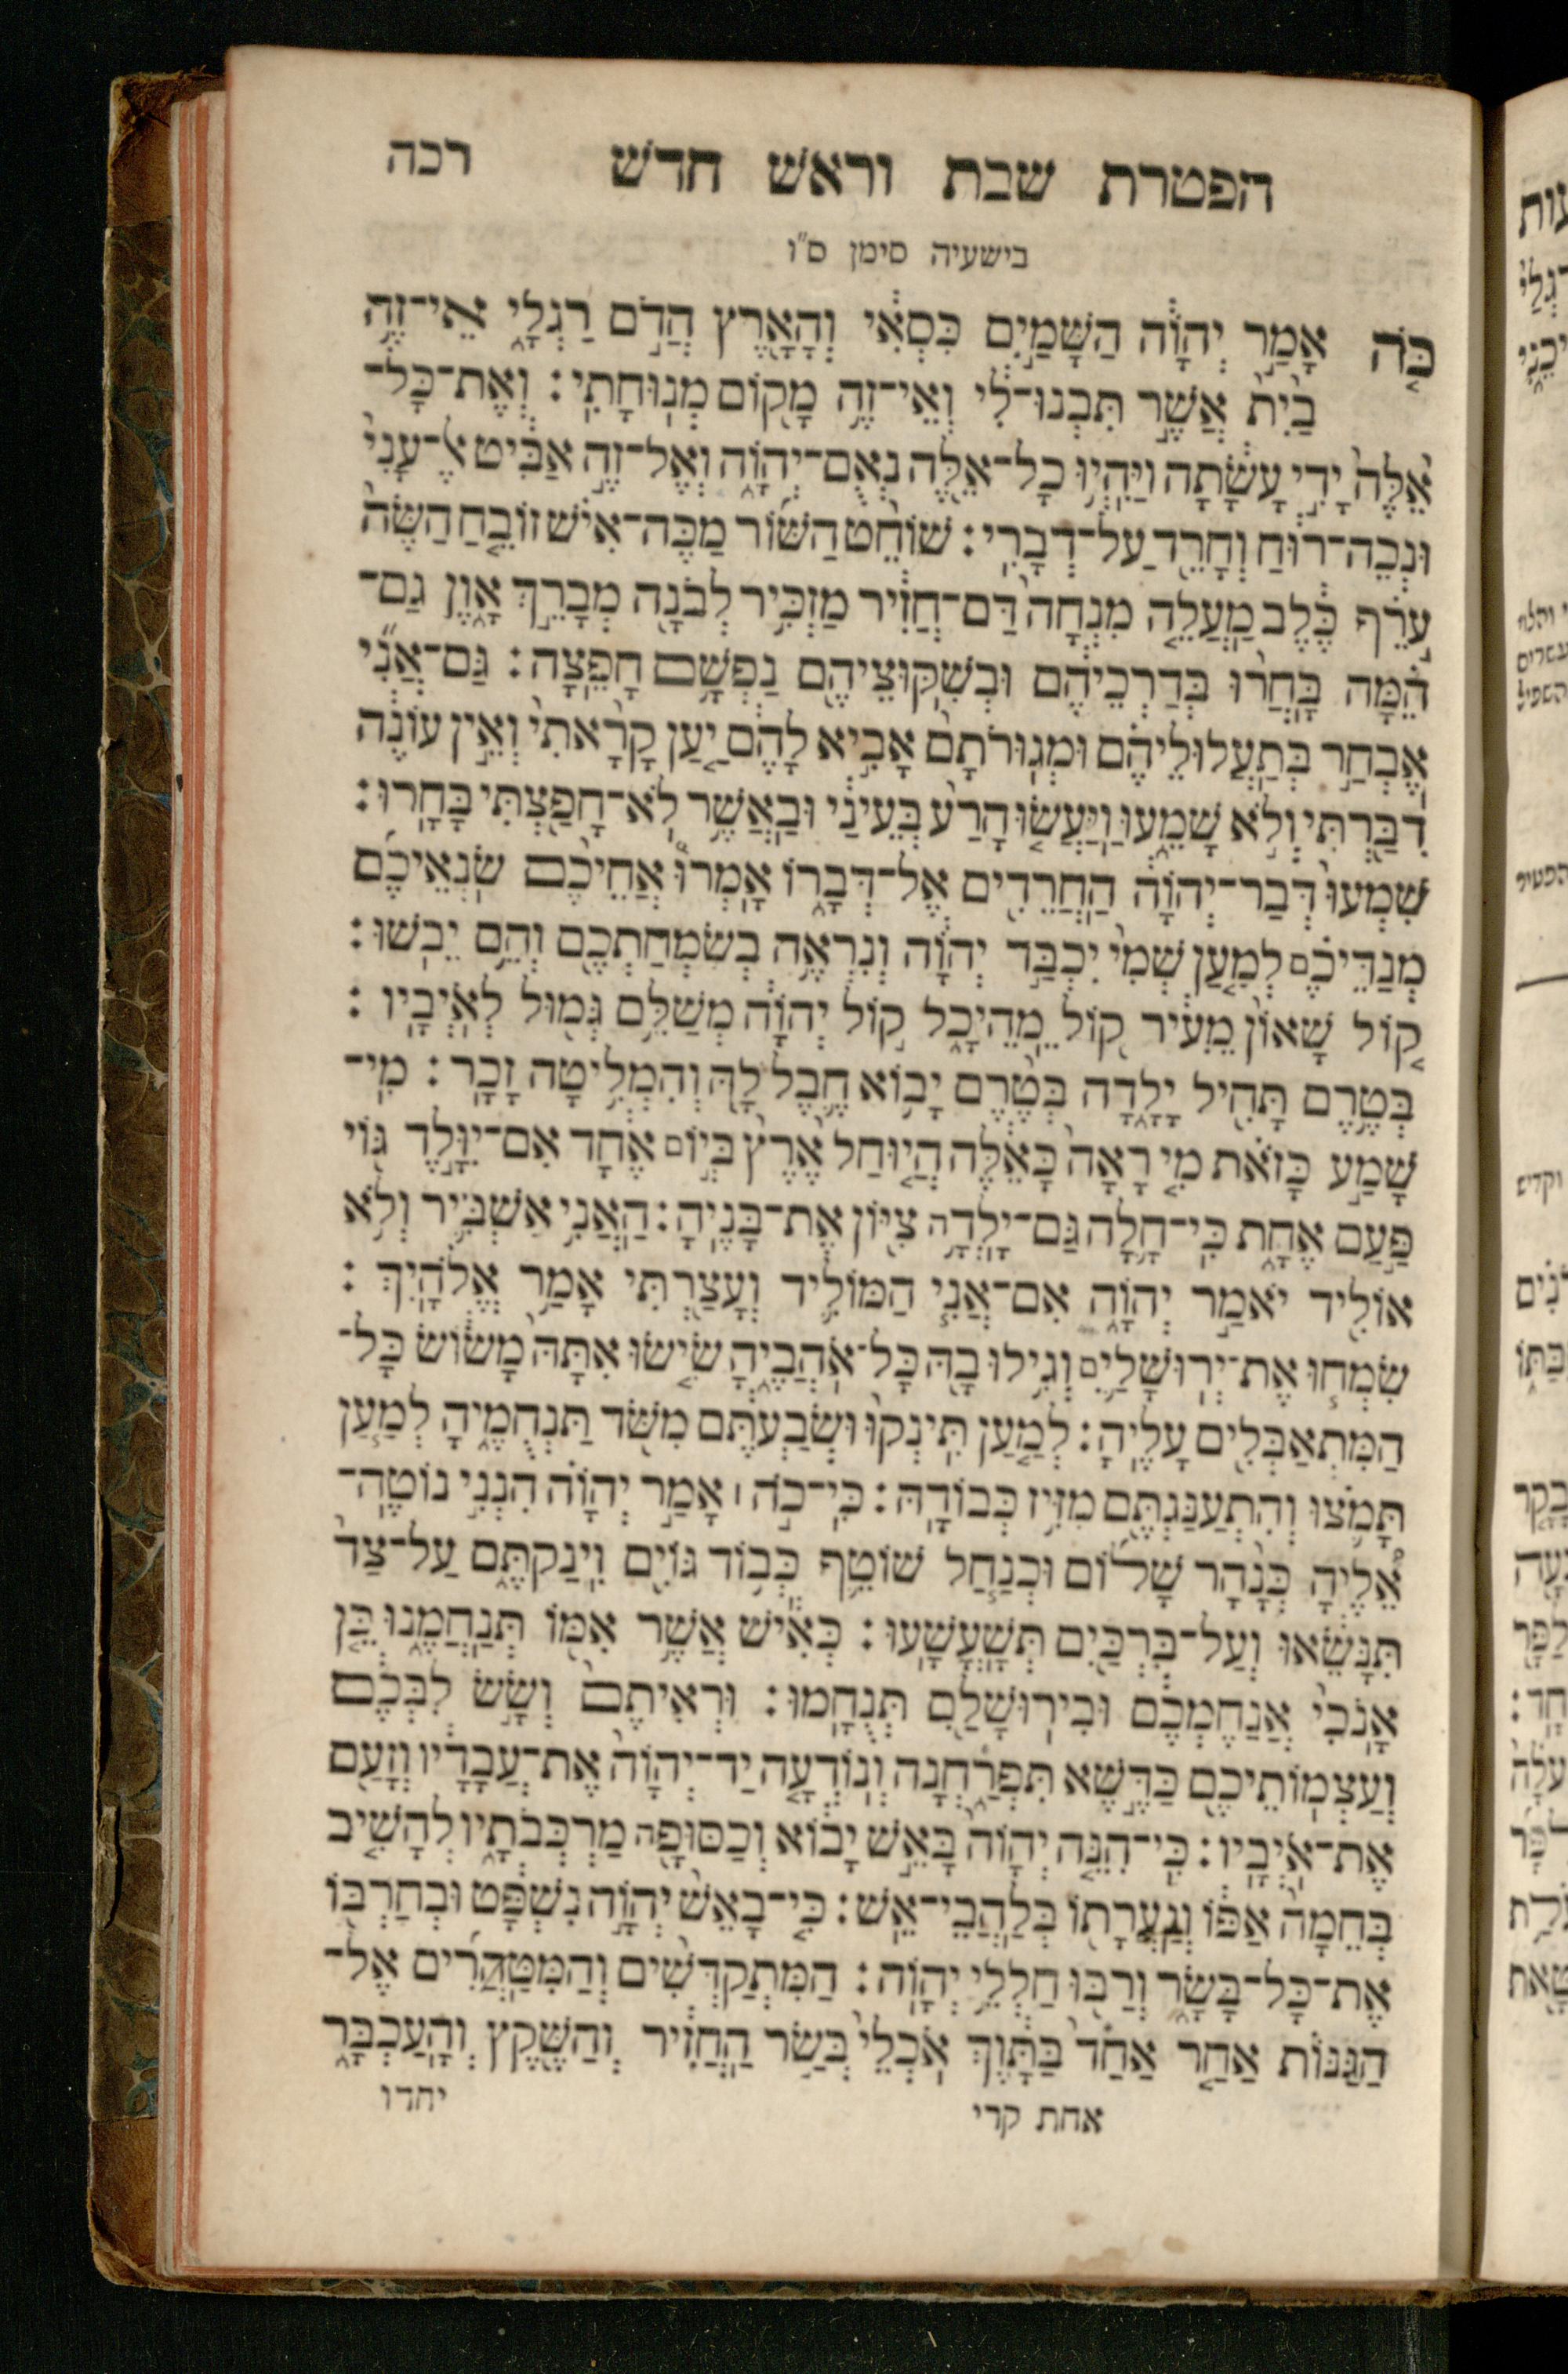 הפטרת שבת וראש חדש רכה
בישעיה סימן ס״ו
כֹּ֚ה אָמַ֣ר יְהוָ֔ה הַשָּׁמַ֣יִם כִּסְאִ֔י וְהָאָ֖רֶץ הֲדֹ֣ם רַגְלָ֑י אֵי־זֶ֥ה
בַ֙יִת֙ אֲשֶׁ֣ר תִּבְנוּ־לִ֔י וְאֵי־זֶ֥ה מָק֖וֹם מְנֽוּחָתִֽי׃ וְאֶת־כָּל־
אֵ֙לֶּה֙ יָדִ֣י עָשָׂ֔תָה וַיִּֽהְי֥וּ כָל־אֵ֖לֶּה נְאֻם־יְהוָ֑ה וְאֶל־זֶ֣ה אַבִּ֔יט אֶל־עָנִי֙
וּנְכֵה־ר֔וּחַ וְחָרֵ֖ד עַל־דְּבָרִֽי׃ שׁוֹחֵ֨ט הַשּׁ֜וֹר מַכֵּה־אִ֗ישׁ זוֹבֵ֤חַ הַשֶּׂה֙
עֹ֣רֵֽף כֶּ֔לֶב מַֽעֲלֵ֤ה מִנְחָה֙ דַּם־חֲזִ֔יר מַזְכִּ֥יר לְבֹנָ֖ה מְבָ֣רֵֽךְ אָ֑וֶן גַם־
הֵ֗מָּה בָּֽחֲרוּ֙ בְּדַרְכֵיהֶ֔ם וּבְשִׁקּֽוּצֵיהֶ֖ם נַפְשָׁ֥ם חָפֵֽצָה׃ גַּם־אֲנִ֞י
אֶבְחַ֣ר בְּתַֽעֲלוּלֵיהֶ֗ם וּמְגֽוּרֹתָם֙ אָבִ֣יא לָהֶ֔ם יַ֤עַן קָרָ֙אתִי֙ וְאֵ֣ין עוֹנֶ֔ה
דִּבַּ֖רְתִּי וְלֹ֣א שָׁמֵ֑עוּ וַיַּֽעֲשׂ֤וּ הָרַע֙ בְּעֵינַ֔י וּבַֽאֲשֶׁ֥ר לֹֽא־חָפַ֖צְתִּי בָּחָֽרוּ׃
שִׁמְעוּ֙ דְּבַר־יְהוָ֔ה הַֽחֲרֵדִ֖ים אֶל־דְּבָר֑וֹ אָֽמְרוּ֩ אֲחֵיכֶ֨ם שֹֽׂנְאֵיכֶ֜ם
מְנַדֵּיכֶ֗ם לְמַ֤עַן שְׁמִי֙ יִכְבַּ֣ד יְהוָ֔ה וְנִרְאֶ֥ה בְשִׂמְחַתְכֶ֖ם וְהֵ֥ם יֵבֹֽשׁוּ׃
ק֤וֹל שָׁאוֹן֙ מֵעִ֔יר ק֖וֹל מֵֽהֵיכָ֑ל ק֣וֹל יְהוָ֔ה מְשַׁלֵּ֥ם גְּמ֖וּל לְאֹֽיְבָֽיו׃
בְּטֶ֥רֶם תָּחִ֖יל יָלָ֑דָה בְּטֶ֨רֶם יָב֥וֹא חֵ֛בֶל לָ֖הּ וְהִמְלִ֥יטָה זָכָֽר׃ מִֽי־
שָׁמַ֣ע כָּזֹ֗את מִ֤י רָאָה֙ כָּאֵ֔לֶּה הֲי֤וּחַל אֶ֙רֶץ֙ בְּי֣וֹם אֶחָ֔ד אִם־יִוָּ֥לֵֽד גּ֖וֹי
פַּ֣עַם אֶחָ֑ת כִּֽי־חָ֛לָה גַּם־יָלְדָ֥ה צִיּ֖וֹן אֶת־בָּנֶֽיהָ׃ הַֽאֲנִ֥י אַשְׁבִּ֛יר וְלֹ֥א
אוֹלִ֖יד יֹאמַ֣ר יְהוָ֑ה אִם־אֲנִ֧י הַמּוֹלִ֛יד וְעָצַ֖רְתִּי אָמַ֥ר אֱלֹהָֽיִךְ׃
שִׂמְח֧וּ אֶת־יְרֽוּשָׁלַ֛יִם וְגִ֥ילוּ בָ֖הּ כָּל־אֹֽהֲבֶ֑יהָ שִׂ֤ישׂוּ אִתָּהּ֙ מָשׂ֔וֹשׂ כָּל־
הַמִּתְאַבְּלִ֖ים עָלֶֽיהָ׃ לְמַ֤עַן תִּֽינְקוּ֙ וּשְׂבַעְתֶּ֔ם מִשֹּׁ֖ד תַּנְחֻמֶ֑יהָ לְמַ֧עַן
תָּמֹ֛צּוּ וְהִתְעַנַּגְתֶּ֖ם מִזִּ֥יז כְּבוֹדָֽהּ׃ כִּֽי־כֹ֣ה ׀ אָמַ֣ר יְהוָ֗ה הִנְנִ֣י נוֹטֶֽה־
אֵ֠לֶיהָ כְּנָהָ֨ר שָׁל֜וֹם וּכְנַ֧חַל שׁוֹטֵ֛ף כְּב֥וֹד גּוֹיִ֖ם וִֽינַקְתֶּ֑ם עַל־צַד֙
תִּנָּשֵׂ֔אוּ וְעַל־בִּרְכַּ֖יִם תְּשָֽׁעֳשָֽׁעוּ׃ כְּאִ֕ישׁ אֲשֶׁ֥ר אִמּ֖וֹ תְּנַֽחֲמֶ֑נּוּ כֵּ֤ן
אָֽנֹכִי֙ אֲנַ֣חֶמְכֶ֔ם וּבִירֽוּשָׁלַ֖‍ִם תְּנֻחָֽמוּ׃ וּרְאִיתֶם֙ וְשָׂ֣שׂ לִבְּכֶ֔ם
וְעַצְמֽוֹתֵיכֶ֖ם כַּדֶּ֣שֶׁא תִפְרַ֑חְנָה וְנֽוֹדְעָ֤ה יַד־יְהוָה֙ אֶת־עֲבָדָ֔יו וְזָעַ֖ם
אֶת־אֹֽיְבָֽיו׃ כִּֽי־הִנֵּ֤ה יְהוָה֙ בָּאֵ֣שׁ יָב֔וֹא וְכַסּוּפָ֖ה מַרְכְּבֹתָ֑יו לְהָשִׁ֤יב
בְּחֵמָה֙ אַפּ֔וֹ וְגַֽעֲרָת֖וֹ בְּלַֽהֲבֵי־אֵֽשׁ׃ כִּ֤י בָאֵשׁ֙ יְהוָ֣ה נִשְׁפָּ֔ט וּבְחַרְבּ֖וֹ
אֶת־כָּל־בָּשָׂ֑ר וְרַבּ֖וּ חַלְלֵ֥י יְהוָֽה׃ הַמִּתְקַדְּשִׁ֨ים וְהַמִּֽטַּֽהֲרִ֜ים אֶל־
הַגַּנּ֗וֹת אַחַ֤ר אַחַד֙ בַּתָּ֔וֶךְ אֹֽכְלֵי֙ בְּשַׂ֣ר הַֽחֲזִ֔יר וְהַשֶּׁ֖קֶץ וְהָֽעַכְבָּ֑ר
אחת קרי יחדו